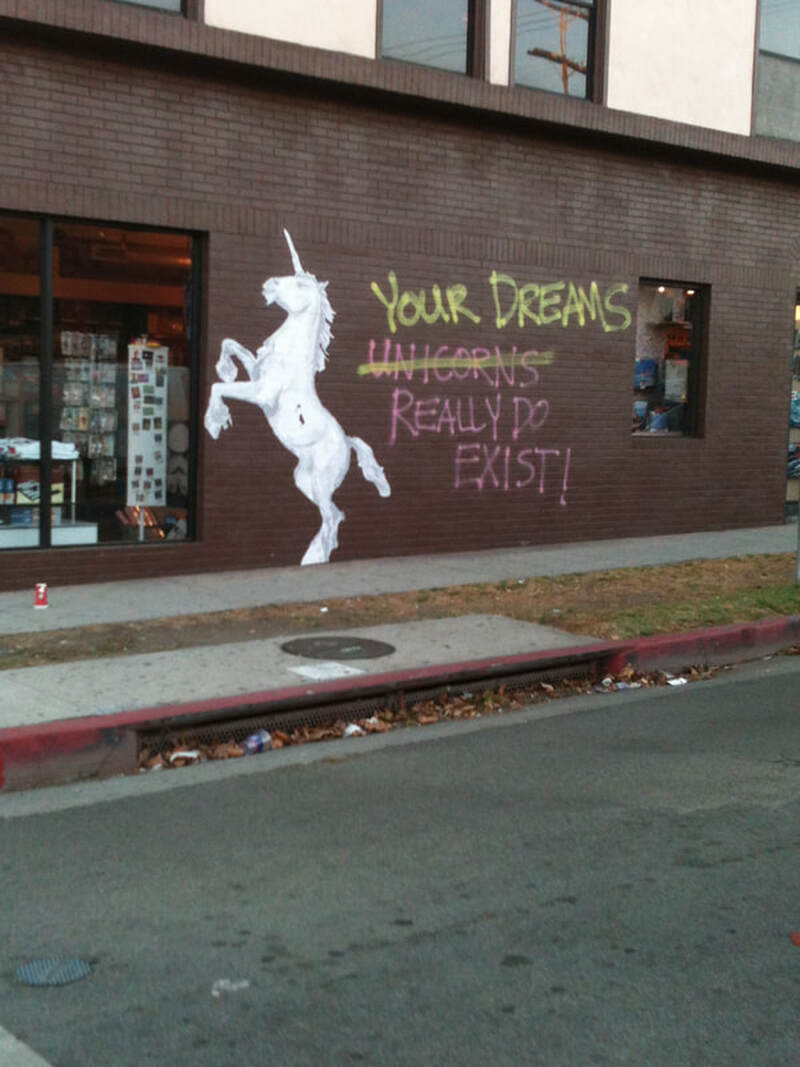 YOUR DREAMS
UNICORNS
REALLY DO
EXIST!